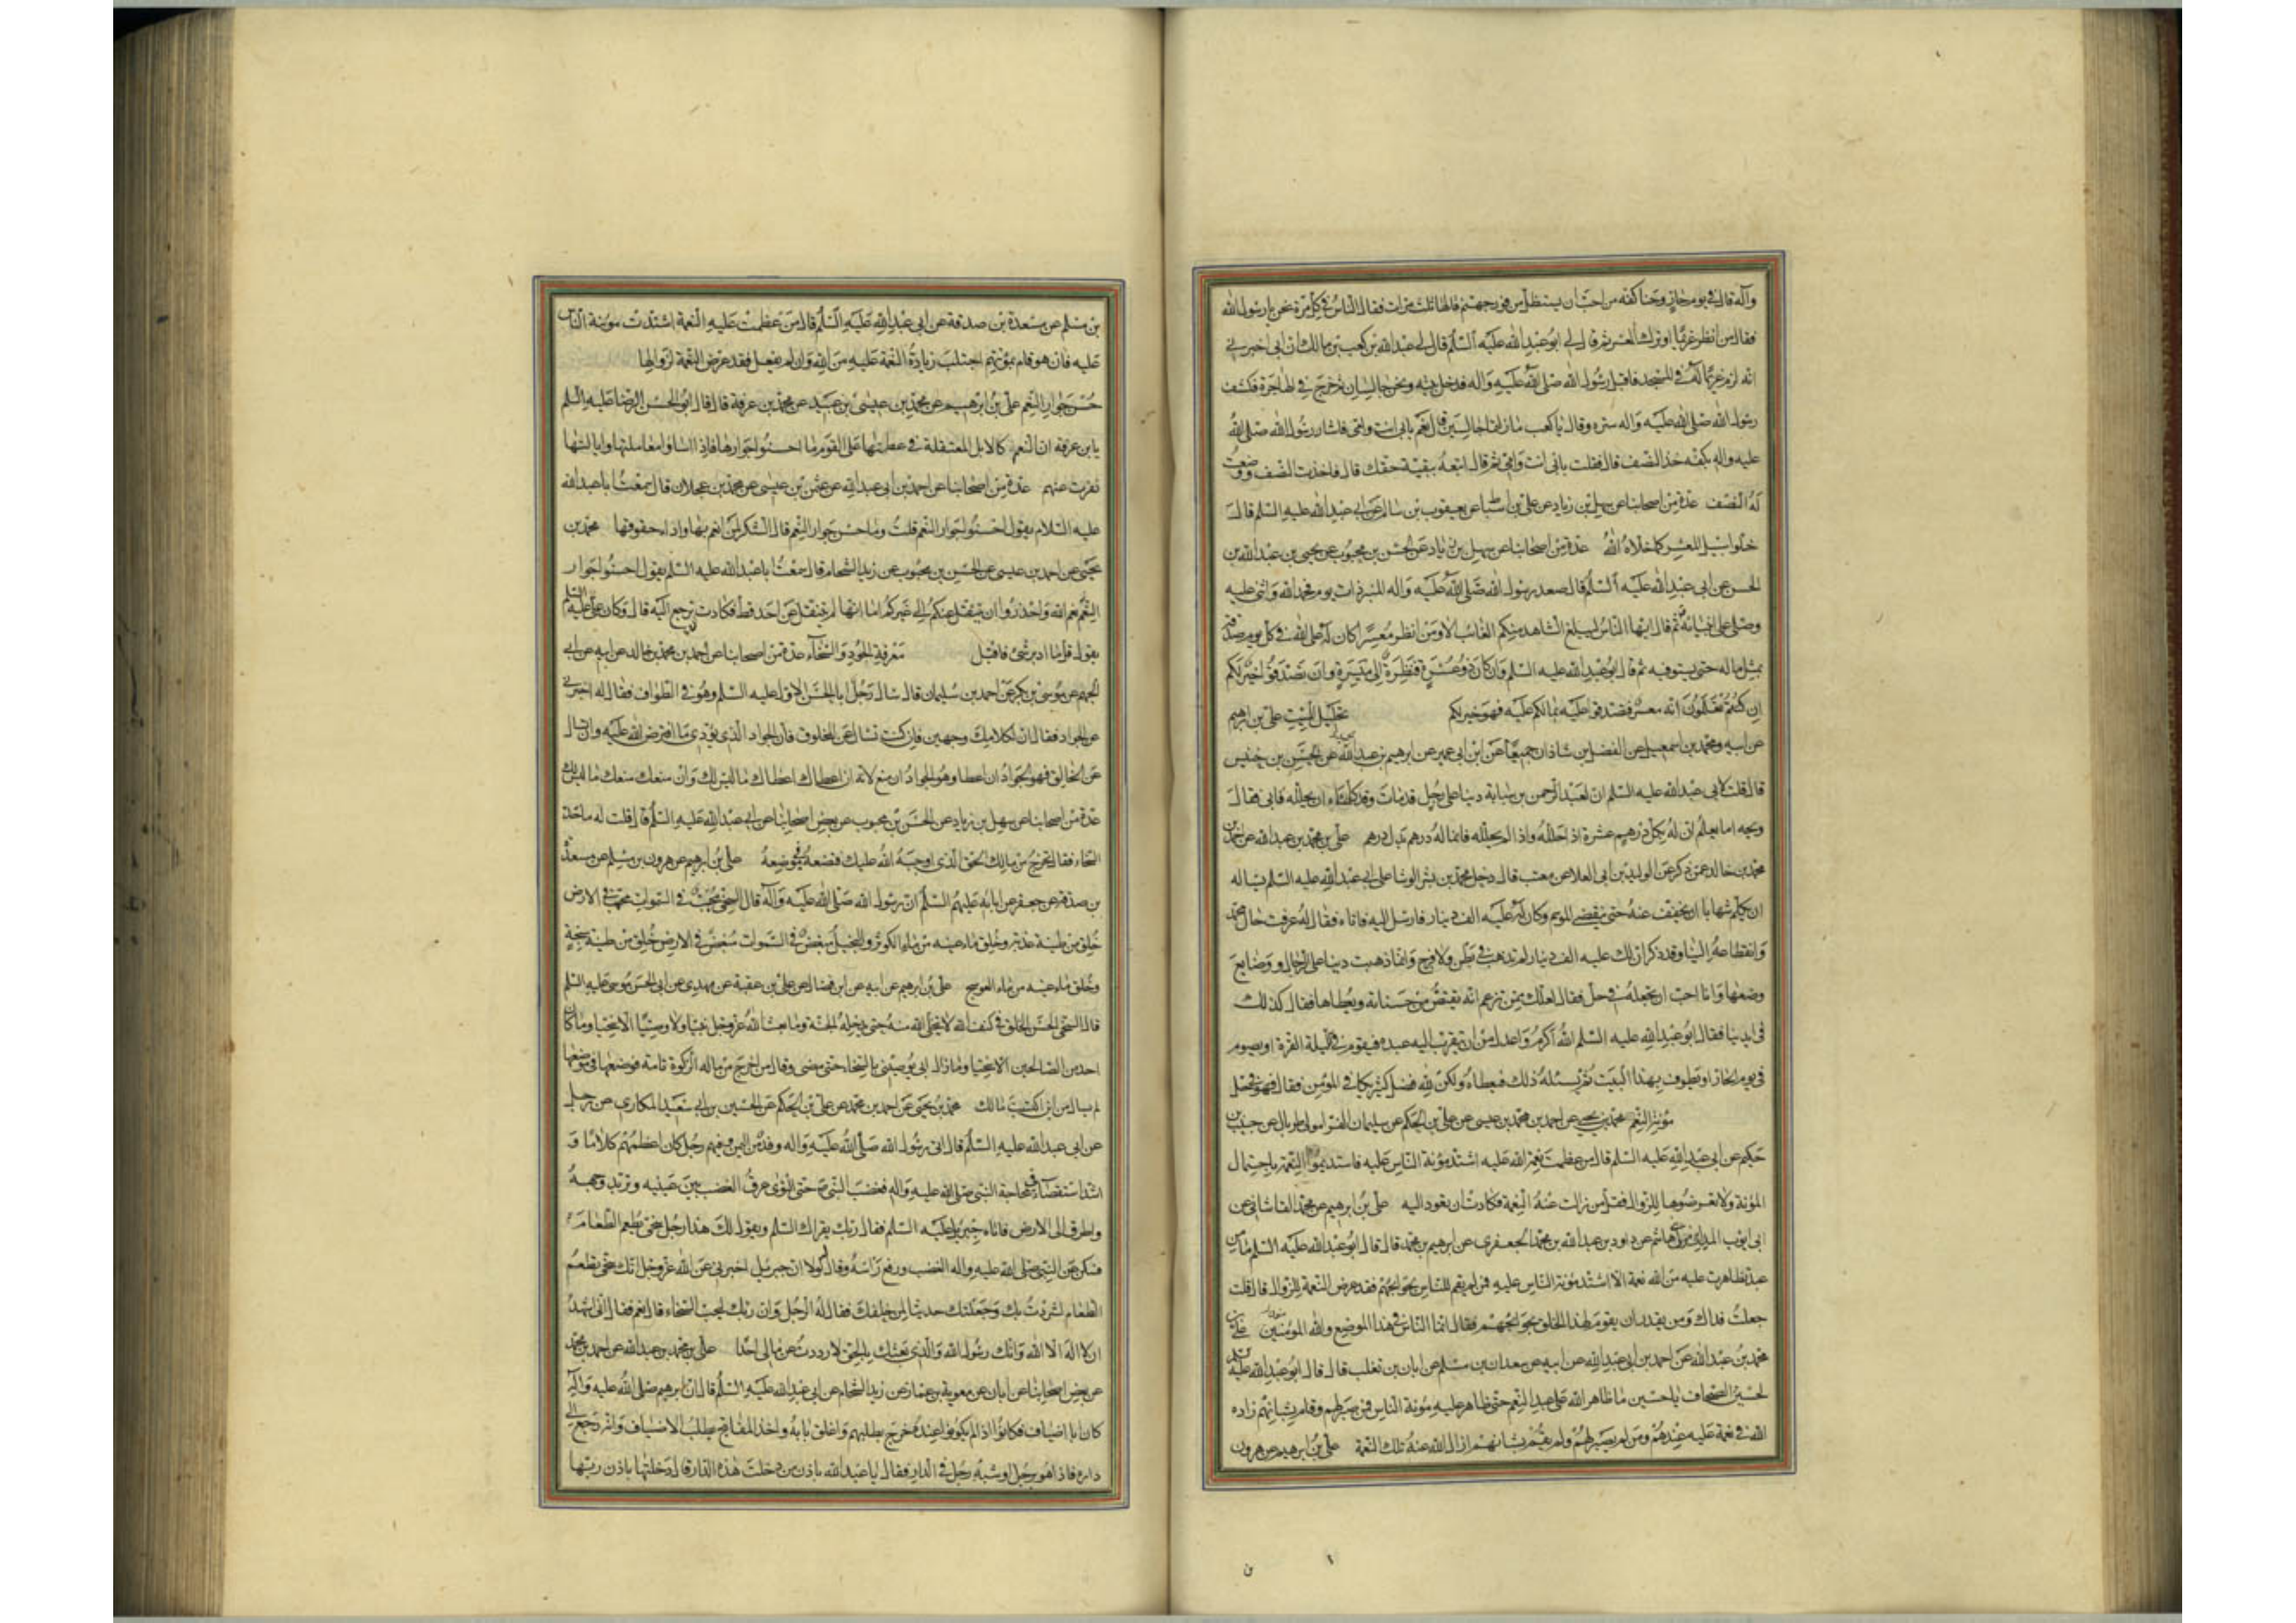 وآله قال في يوم حار وحنا كفه من احب ان يستظل من فور جهنم قالها ثلث مرات فقال الناس في كل مرة نحن يا رسول الله
فقال من انظر غريما او ترك لمعسر ثم قال لي ابو عبد الله عليه السلم قال لي عبد الله بن كعب بن مالك ان ابي اخبرني
انه لزم غريما له في المسجد فاقبل رسول الله صلى الله عليه وآله فدخل بيته ونحن جالسان ثم خرج في الهاجرة فكشف
رسول الله صلى الله عليه وآله ستره وقال يا كعب ما زلتما جالسين قال نعم بابي انت وامي فاشار رسول الله صلى الله
عليه وآله بكفه خذ النصف قال فقلت بابي انت وامي ثم قال اتبعه ببقية حقك قال فاخذت النصف ووضعت
له النصف عدة من اصحابنا عن سهل بن زياد عن علي بن اسباط عن يعقوب بن سالم عن ابي عبد الله عليه السلم قال
خلوا سبيل المعسر كما خلاه الله عدة من اصحابنا عن سهل بن زياد عن الحسن بن محبوب عن يحيى بن عبد الله بن
الحسن عن ابي عبد الله عليه السلم قال صعد رسول الله صلى الله عليه وآله المنبر ذات يوم فحمد الله واثنى عليه
وصلى على انبيائه ثم قال ايها الناس ليبلغ الشاهد منكم الغائب الا ومن انظر معسرا كان له على الله في كل يوم صدقة
بمثل ماله حتى يستوفيه ثم قال ابو عبد الله عليه السلم وان كان ذو عسرة فنظرة الى ميسرة وان تصدقوا خير لكم
ان كنتم تعلمون انه معسر فتصدقوا عليه بمالكم عليه فهو خير لكم تحليل الميت علي بن ابرهيم
عن ابيه ومحمد بن اسمعيل عن الفضل بن شاذان جميعا عن ابن ابي عمير عن ابرهيم بن عبد الله عن الحسن بن خنيس
قال قلت لابي عبد الله عليه السلم ان لعبد الرحمن بن سيابة دينا على رجل قد مات وقد كلمناه ان يحلله فابى فقال
ويحه اما يعلم ان له بكل درهم عشرة اذا حلله واذا لم يحلله فانما له درهم بدل درهم علي بن محمد بن عبد الله عن احمد بن
محمد بن خالد عمن ذكره عن الوليد بن ابي العلا عن معتب قال دخل محمد بن بشر الوشا على ابي عبد الله عليه السلم يساله
ان يكلم شهابا ان يخفف عنه حتى ينقضي الموسم وكان له عليه الف دينار فارسل اليه فاتاه فقال له عرفت حال محمد
وانقطاعه الينا وقد ذكر ان لك عليه الف دينار لم تذهب في بطن ولا فرج وانما ذهبت دينا على الرجال ووضايع
وضعها وانا احب ان تجعله في حل فقال لعلك ممن تزعم انه يقتص من حسناته ويعطاها فقال كذلك
في ايدينا فقال ابو عبد الله عليه السلم الله اكرم واعدل من ان يتقرب اليه عبده فيقوم في الليلة القرة او يصوم
في يوم الحار او يطوف بهذا البيت ثم يسلبه ذلك فيعطاه ولكن لله فضل كثير يكافي المؤمن فقال فهو في حل
مؤنة النعم محمد بن يحيى عن احمد بن محمد بن عيسى عن علي بن الحكم عن سليمان الفرا مولى طربال عن حديد بن
حكيم عن ابي عبد الله عليه السلم قال من عظمت نعمة الله عليه اشتد مؤنة الناس عليه فاستديموا النعمة باحتمال
المؤنة ولا تعرضوها للزوال فقل من زالت عنه النعمة فكادت ان تعود اليه علي بن ابرهيم عن محمد القاساني عن
ابي ايوب المديني مولى بني هاشم عن داود بن عبد الله بن محمد الجعفري عن ابرهيم بن محمد قال قال ابو عبد الله عليه السلم ما من
عبد تظاهرت عليه من الله نعمة الا اشتد مؤنة الناس عليه فمن لم يقم للناس بحوائجهم فقد عرض النعمة للزوال قال قلت
جعلت فداك ومن يقدر ان يقوم لهذا الخلق بحوائجهم فقال انما الناس في هذا الموضع والله المؤمنين علي بن
محمد بن عبد الله عن احمد بن ابي عبد الله عن ابيه عن سعدان بن مسلم عن ابان بن تغلب قال قال ابو عبد الله عليه السلم
لحسين الصحاف يا حسين ما ظاهر الله على عبد النعم حتى ظاهر عليه مؤنة الناس فمن صبر لهم وقام بشانهم زاده
الله في نعمه عليه عندهم ومن لم يصبر لهم ولم يقم بشانهم ازال الله عنه تلك النعمة علي بن ابرهيم عن هرون
بن مسلم عن مسعدة بن صدقة عن ابي عبد الله عليه السلم قال من عظمت عليه النعمة اشتدت مؤنة الناس
عليه فان هو قام بمؤنتهم اجتلب زيادة النعمة عليه من الله وان لم يفعل فقد عرض النعمة لزوالها
حسن جوار النعم علي بن ابرهيم عن محمد بن عيسى بن عبيد عن محمد بن عرفة قال قال ابو الحسن الرضا عليه السلم
يا بن عرفة ان النعم كالابل المعتقلة في عطنها على القوم ما احسنوا جوارها فاذا اساؤا معاملتها وايالتها
نفرت عنهم عدة من اصحابنا عن احمد بن ابي عبد الله عن عثمن بن عيسى عن محمد بن عجلان قال سمعت ابا عبد الله
عليه السلام يقول احسنوا جوار النعم قلت وما حسن جوار النعم قال الشكر لمن انعم بها واداء حقوقها محمد بن
يحيى عن احمد بن عيسى عن الحسن بن محبوب عن زيد الشحام قال سمعت ابا عبد الله عليه السلم يقول احسنوا جوار
النعم نعم الله واحذروا ان ينتقل عنكم الى غيركم اما انها لم تنتقل عن احد قط فكادت ترجع اليه قال وكان علي عليه السلم
يقول قل ما ادبر شئ فاقبل معرفة الجود والسخاء عدة من اصحابنا عن احمد بن محمد بن خالد عن ابيه عن ابي
الجهم عن موسى بن بكر عن احمد بن سليمان قال سال رجل ابا الحسن الاول عليه السلم وهو في الطواف فقال له اخبرني
عن الجواد فقال ان لكلامك وجهين فان كنت تسال عن المخلوق فان الجواد الذي يؤدي ما افترض الله عليه وان تسال
عن الخالق فهو الجواد ان اعطا وهو الجواد ان منع لانه ان اعطاك اعطاك ما ليس لك وان منعك منعك ما ليس لك
عدة من اصحابنا عن سهل بن زياد عن الحسن بن محبوب عن بعض اصحابنا عن ابي عبد الله عليه السلم قال قلت له ما حد
السخاء فقال تخرج من مالك الحق الذي اوجبه الله عليك فتضعه في موضعه علي بن ابرهيم عن هرون بن مسلم عن مسعدة
بن صدقة عن جعفر عن ابائه عليهم السلم ان رسول الله صلى الله عليه وآله قال السخي محبب في السموات محبب في الارض
خلق من طينة عذبة وخلق ماء عينيه من ماء الكوثر والبخيل مبغض في السموات مبغض في الارض خلق من طينة سبخة
وخلق ماء عينيه من ماء العوسج علي بن ابرهيم عن ابيه عن ابن فضال عن علي بن عقبة عن مهدي عن ابي الحسن موسى عليه السلم
قال السخي الحسن الخلق في كنف الله لا يتخلى الله منه حتى يدخله الجنة وما بعث الله عز وجل نبيا ولا وصيا الا سخيا وما كان
احد من الصالحين الا سخيا وما زال ابي يوصيني بالسخاء حتى مضى وقال من اخرج من ماله الزكوة تامة فوضعها في موضعها
لم يسال من اين اكتسبت مالك محمد بن يحيى عن احمد بن محمد عن علي بن الحكم عن الحسين بن ابي سعيد المكاري عن رجل
عن ابي عبد الله عليه السلم قال اتى رسول الله صلى الله عليه وآله وفد من اليمن وفيهم رجل كان اعظمهم كلاما و
اشد استقصاء في محاجة النبي صلى الله عليه وآله فغضب النبي ص حتى التوى عرق الغضب بين عينيه وتربد وجهه
واطرق الى الارض فاتاه جبريل عليه السلم فقال ربك يقراك السلم ويقول لك هذا رجل سخي يطعم الطعام
فسكن عن النبي صلى الله عليه وآله الغضب ورفع راسه وقال له لولا ان جبرئيل اخبرني عن الله عز وجل انك سخي تطعم
الطعام لشردت بك وجعلتك حديثا لمن خلفك فقال له الرجل وان ربك ليحب السخاء فقال نعم فقال اني اشهد
ان لا اله الا الله وانك رسول الله والذي بعثك بالحق لا رددت عن مالي احدا علي بن محمد بن عبد الله عن احمد بن محمد
عن بعض اصحابنا عن ابان عن معوية بن عمار عن زيد الشحام عن ابي عبد الله عليه السلم قال ان ابرهيم صلى الله عليه وآله
كان ابا اضياف فكانوا اذا لم يكونوا عنده خرج يطلبهم واغلق بابه واخذ المفاتيح يطلب الاضياف وانه رجع الى
داره فاذا هو برجل او شبه رجل في الدار فقال يا عبد الله باذن من دخلت هذه الدار قال دخلتها باذن ربها